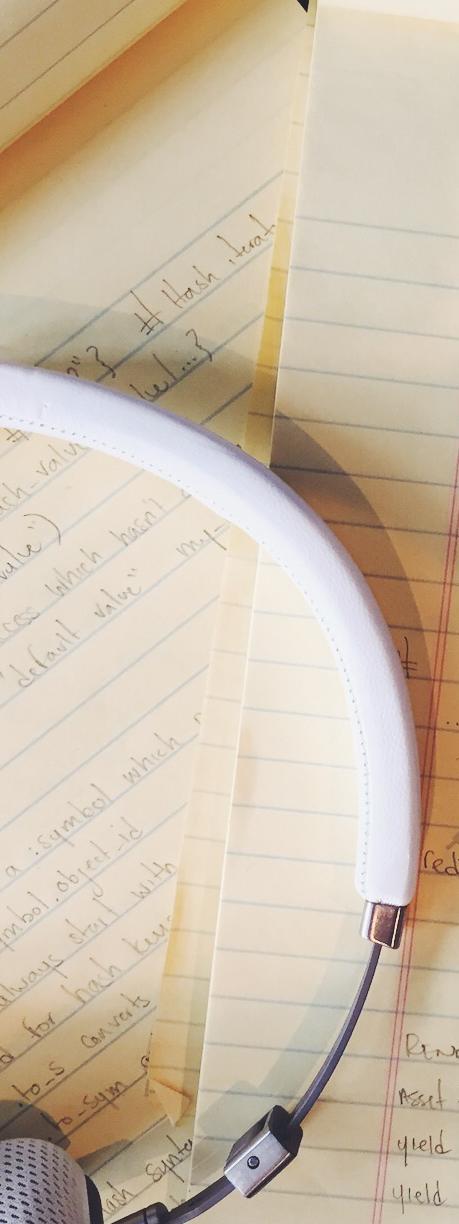 # Hash iterat
"}
...}
ach_valu
value")
ccess which hasn't
my-
"default value"
a :symbol which
mbol.object_id
always start with
d for hash keys
.to_s converts
to_sym
hash syntax
#
...
red
Rend
Asset
yield
yield